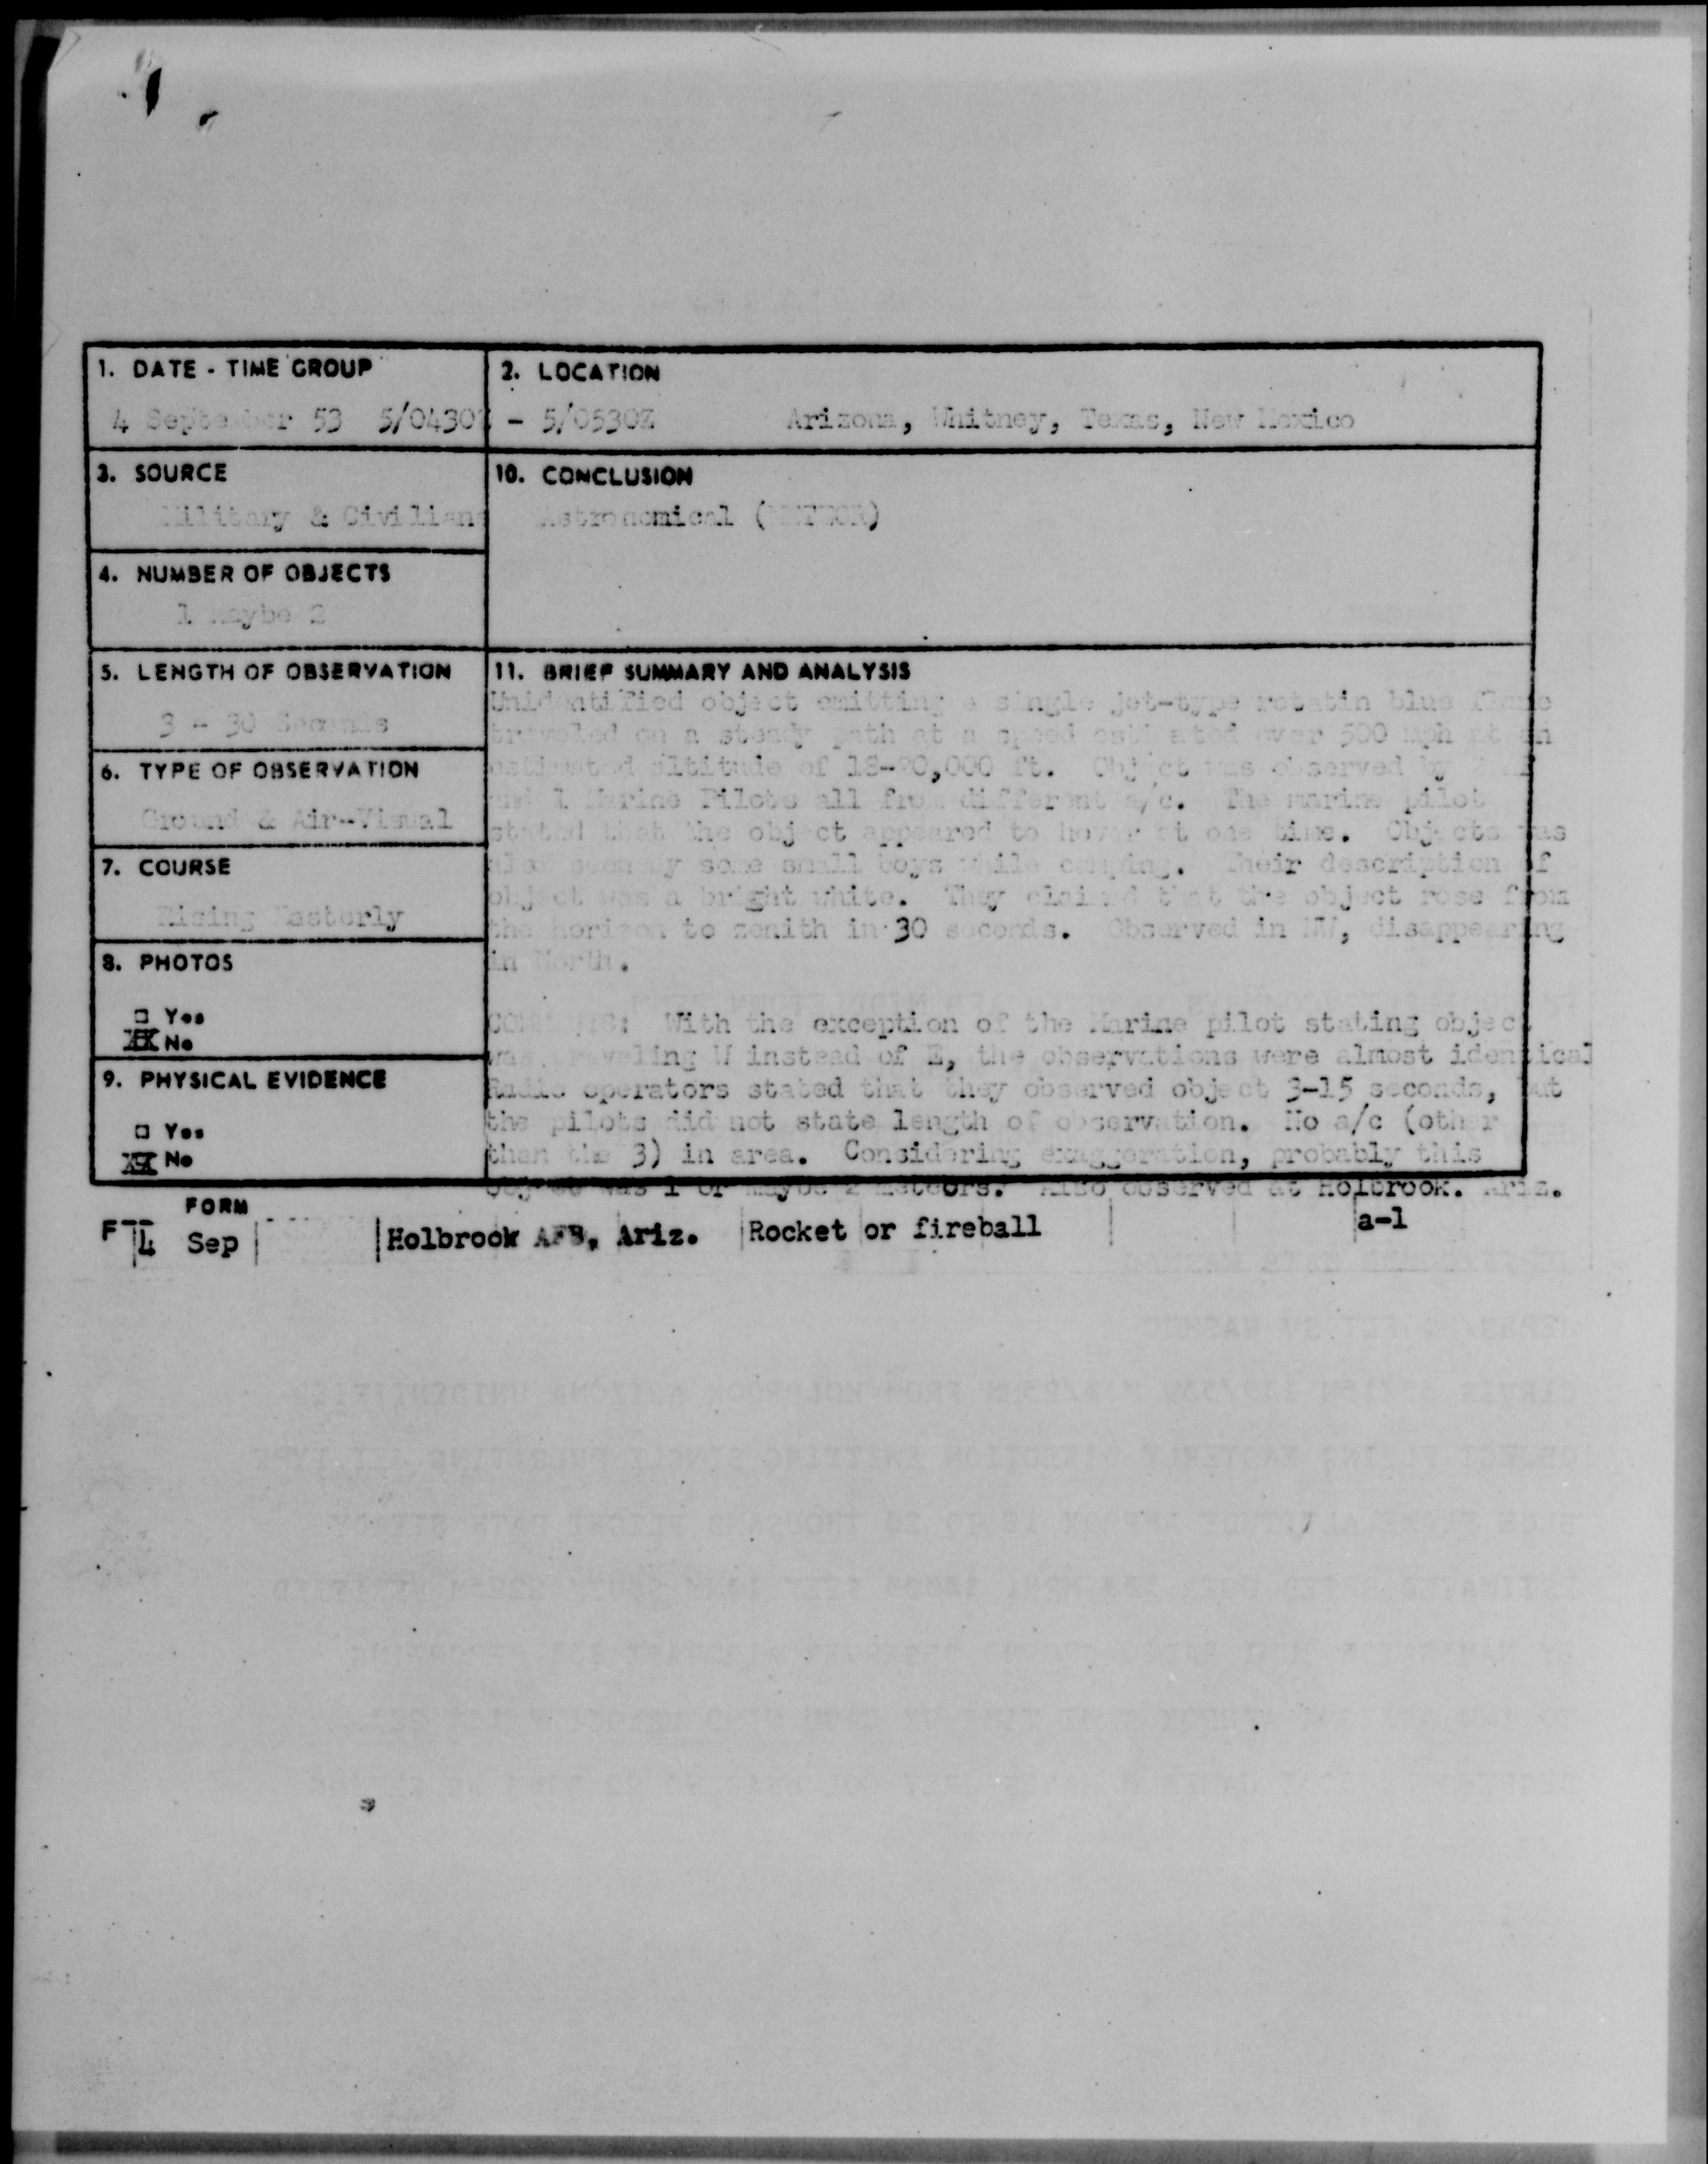 1. DATE - TIME GROUP
4 September 53 5/0430Z - 5/0530Z
2. LOCATION
Arizona, Whitney, Texas, New Mexico
3. SOURCE
Military & Civilian
10. CONCLUSION
Astronomical (METEOR)
4. NUMBER OF OBJECTS
1 maybe 2
5. LENGTH OF OBSERVATION
3 - 30 Seconds
6. TYPE OF OBSERVATION
Ground & Air-Visual
7. COURSE
Rising Easterly
8. PHOTOS
□ Yes
XX No
9. PHYSICAL EVIDENCE
□ Yes
XX No
11. BRIEF SUMMARY AND ANALYSIS
Unidentified object emitting a single jet-type rotatin blue flame
traveled on a steady path at a speed estimated over 500 mph at an
estimated altitude of 18-20,000 ft. Object was observed by
and 1 Marine Pilots all from different a/c. The marine pilot
stated that the object appeared to hover at one time. Objects was
also seen by some small boys while camping. Their description of
object was a bright white. They claimed that the object rose from
the horizon to zenith in 30 seconds. Observed in NW, disappearing
in North.
COMMENTS: With the exception of the Marine pilot stating object
was traveling W instead of E, the observations were almost identical
Radio operators stated that they observed object 3-15 seconds, but
the pilots did not state length of observation. No a/c (other
than the 3) in area. Considering exaggeration, probably this
object was 1 or maybe 2 meteors. Also observed at Holbrook. Ariz.
FORM
F
4 Sep Holbrook AFB, Ariz. Rocket or fireball a-1